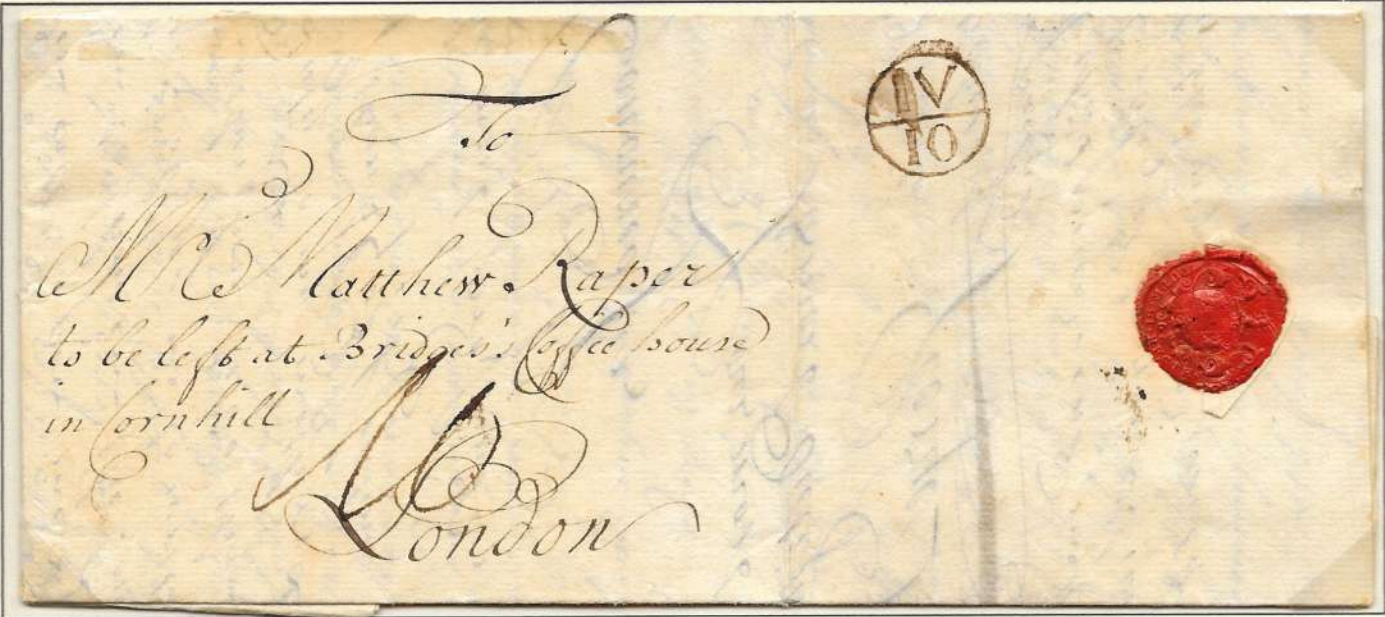 To
Mr. Matthew Raper
to be left at Bridges's Coffee house
in Cornhill
London
10